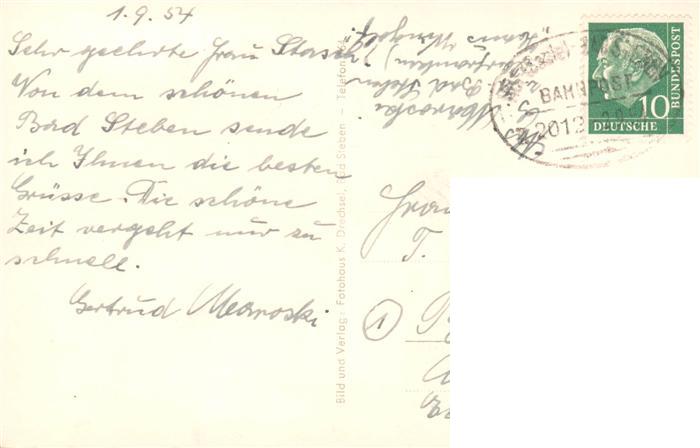 1.9.54
Sehr geehrte Frau Stasch!
Von dem schönen
Bad Steben sende
ich Ihnen die besten
Grüsse. Die schöne
Zeit vergeht nur zu
schnell.
Gertrud Maroski
Bild und Verlag: Fotohaus K. Drechsel, Bad Steben — Telefon
Maroski
Bad Steben
Haus
BAHNPOST
2012
10
DEUTSCHE
BUNDESPOST
Frau
T.
1